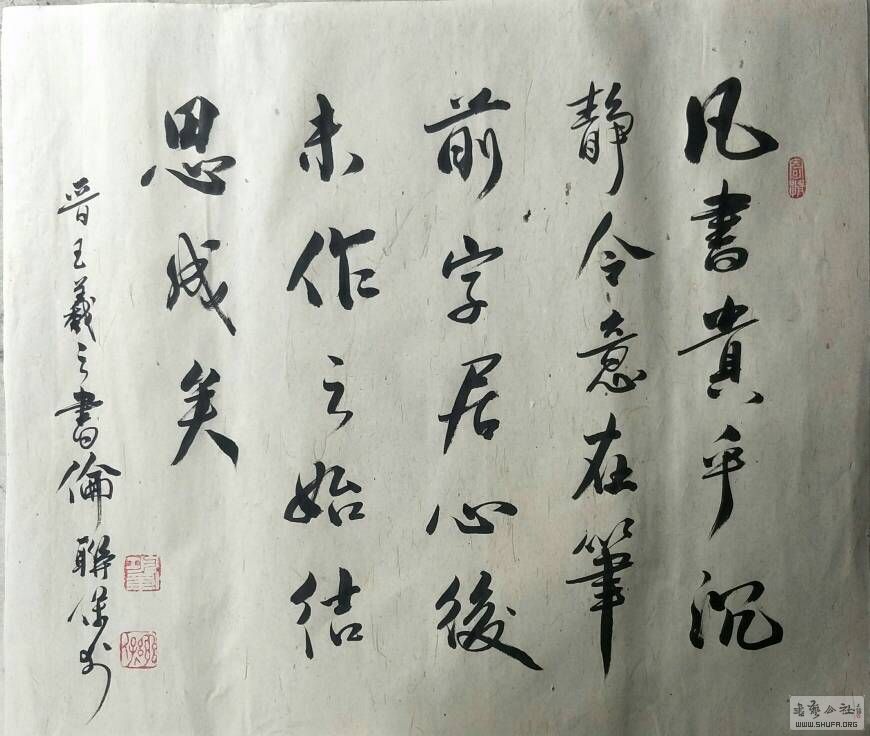 凡書貴乎沉
静令意在筆
前字居心後
未作之始结
思成矣
晋王羲之書倫聯保书
書藝公社
WWW.SHUFA.ORG